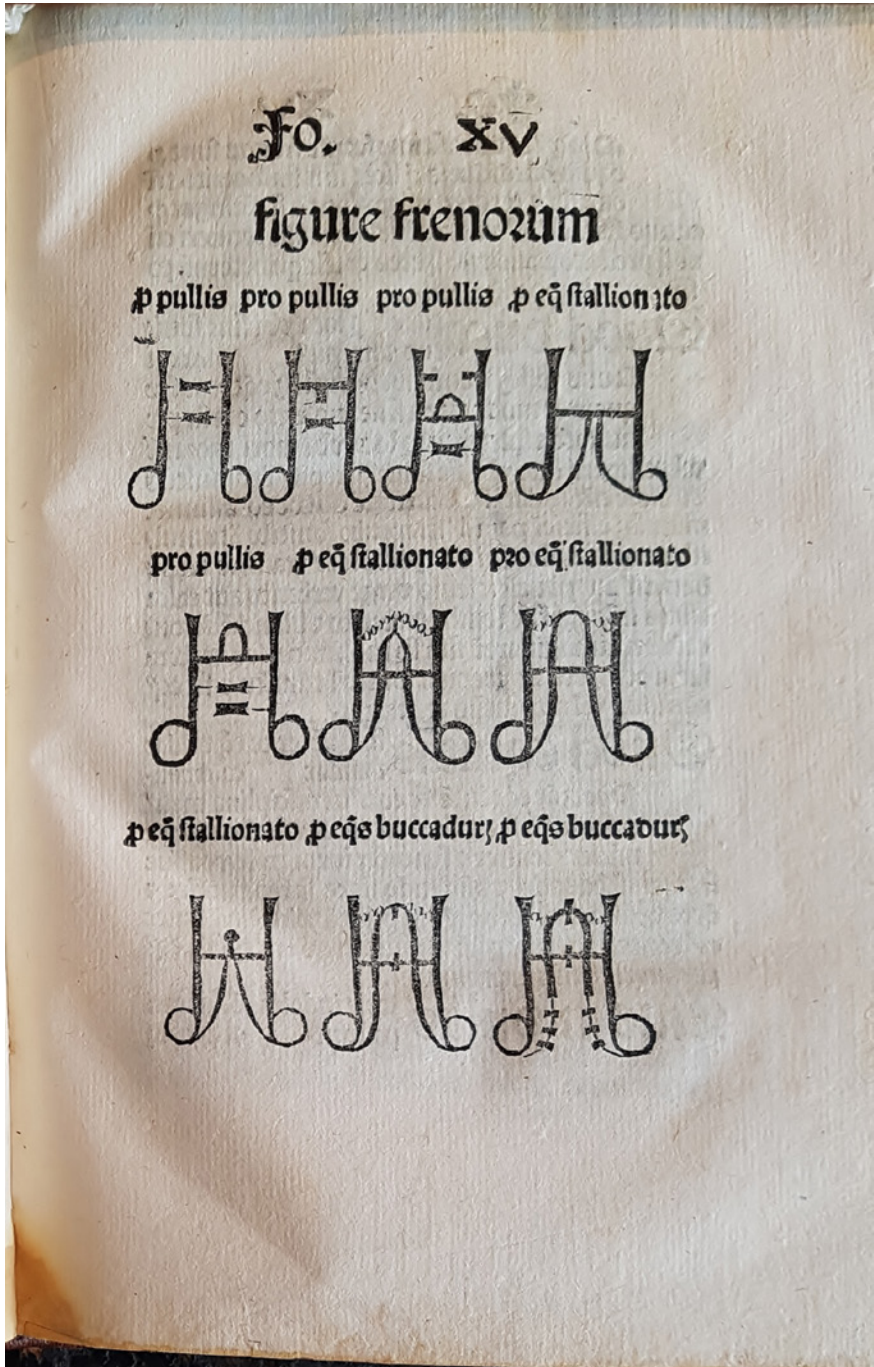 Fo. XV
figure frenoꝛum
ꝓ pullis pro pullis pro pullis ꝓ eq̄ stallionato
pro pullis ꝓ eq̄ stallionato pꝛo eq̄ stallionato
ꝓ eq̄ stallionato ꝓ eq̄s buccadurꝭ ꝓ eq̄s buccadurꝭ